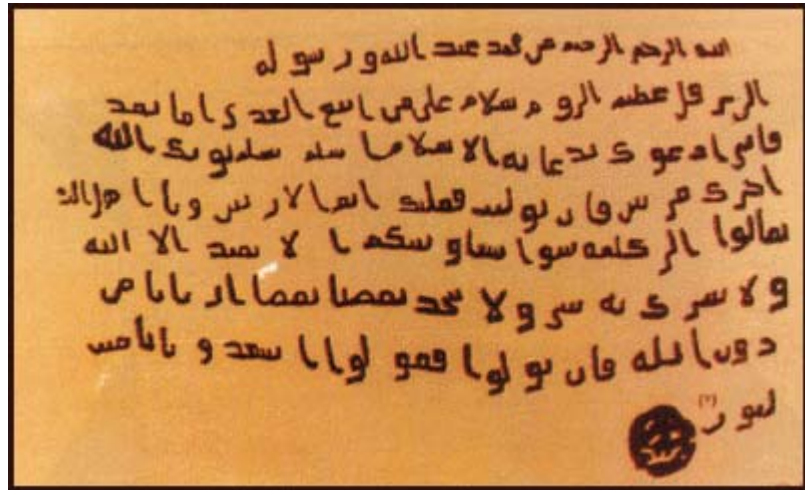 الله الرحمن الرحيم من محمد عبد الله و رسوله
الى هرقل عظيم الروم سلام على من اتبع الهدى اما بعد
فانى ادعوك بدعاية الاسلام اسلم تسلم يوتك الله
اجرك مرتين فان توليت فعليك اثم الاريسين ويا اهل الكتاب
تعالوا الى كلمة سوا بيننا وبينكم الا نعبد الا الله
ولا نشرك به شى ولا يتخذ بعضنا بعضا اربابا من
دون الله فان تولوا فقولوا اشهدوا بانا مسـ
لمون (٢)